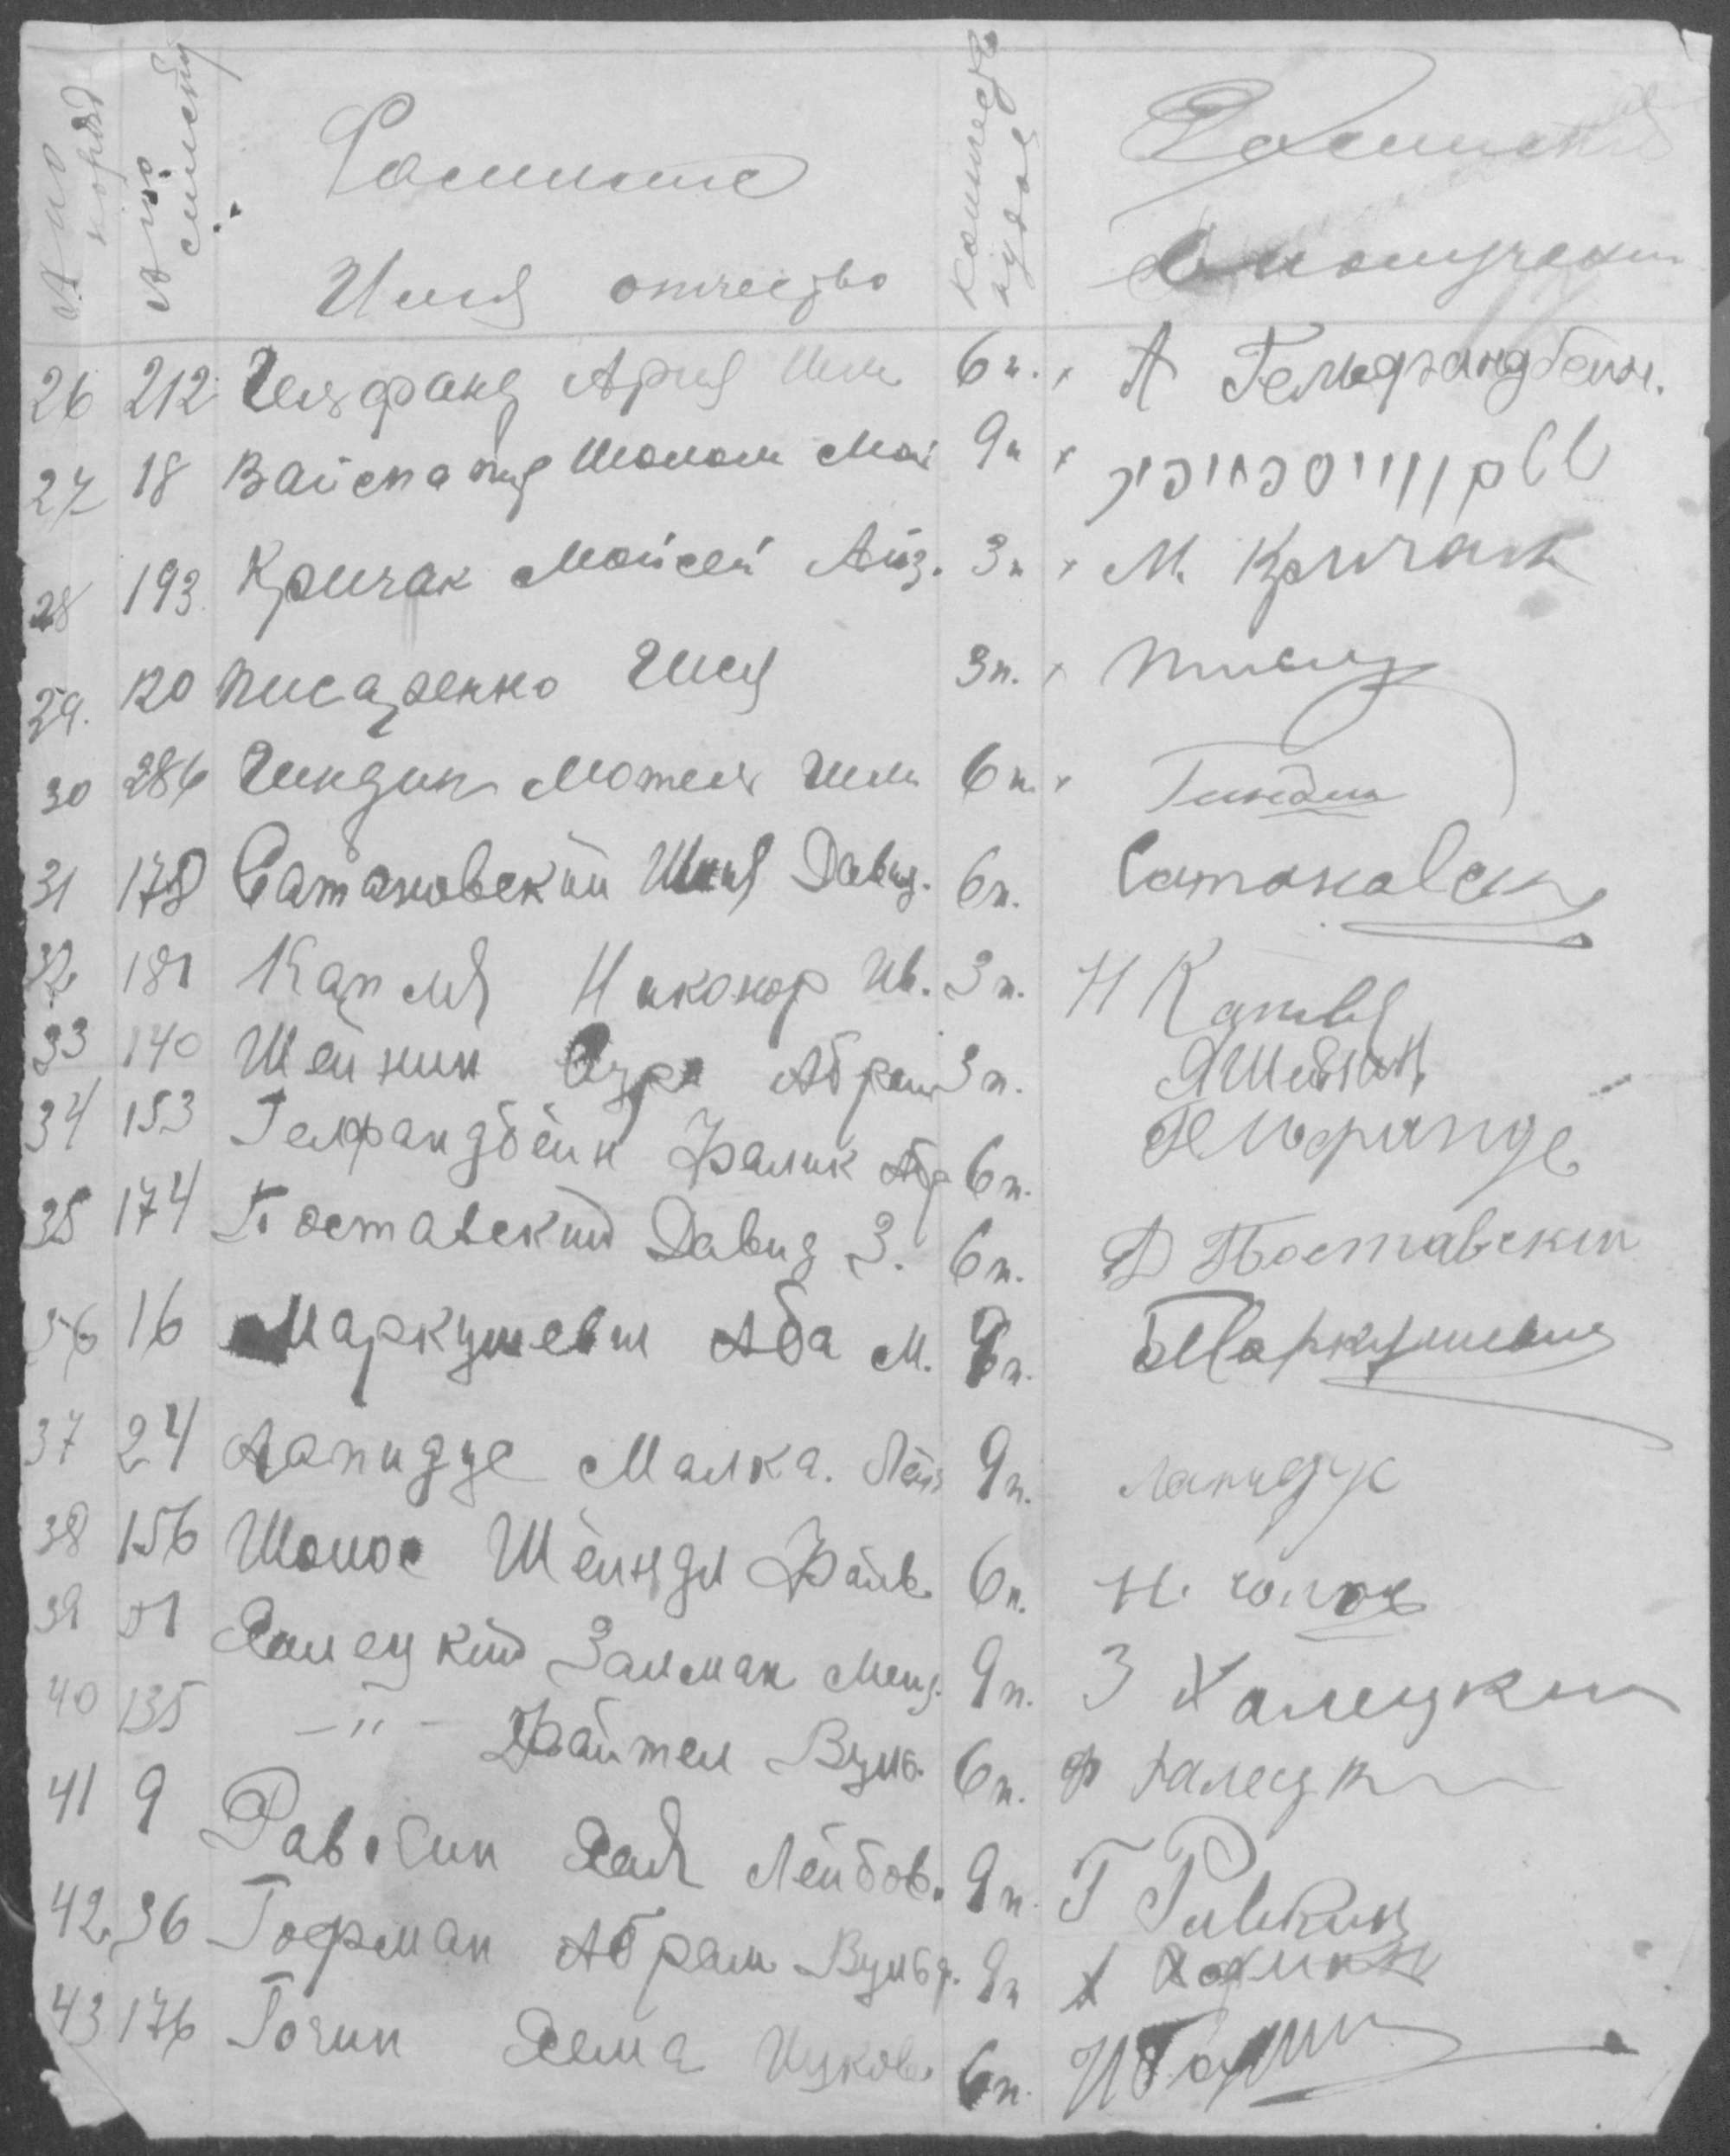 № по поряд
№ по списку
Фамилие
Имя отчество
количество пудов
Роспись
в получении
26 212 Гелфанд Ария 6 п. А Гельфандбейн.
27 18 Вайспапир Шолом Мой 9 п ווייספאפיר
28 193 Кричак Мойсей Айз. 3 п М. Кричак
29. 120 Писаренко Шея 3 п. Писар
30 286 Гиндин Мотель Шм 6 п. Гиндин
31 178 Сатановский Давид. 6 п. Сатановск
32 181 Капля Никонор Ив. 3 п. Н Капля
33 140 Шейнин Абрам 3 п. Шейнин
34 153 Гелфандбейн Фалик Абр 6 п. Гельфанд
35 174 Поставский Давид З. 6 п. Д Поставский
36 16 Маркушевич Аба М. 9 п. Маркушевич
37 24 Лапидус Малка. Лей 9 п. Лапидус
38 156 Шолос Шейндл Файв. 6 п.
39 51 Халецкий Залман Менд. 9 п. З Халецкий
40 135 -"- Файтел Вул. 6 п. Ф Халецк
41 9 Равкин Хая Лейбов. 9 п. Г Равкин
42. 36 Гофман Абрам Вульф. 9 п А
43 176 Гочин Хема Ицков. 6 п.